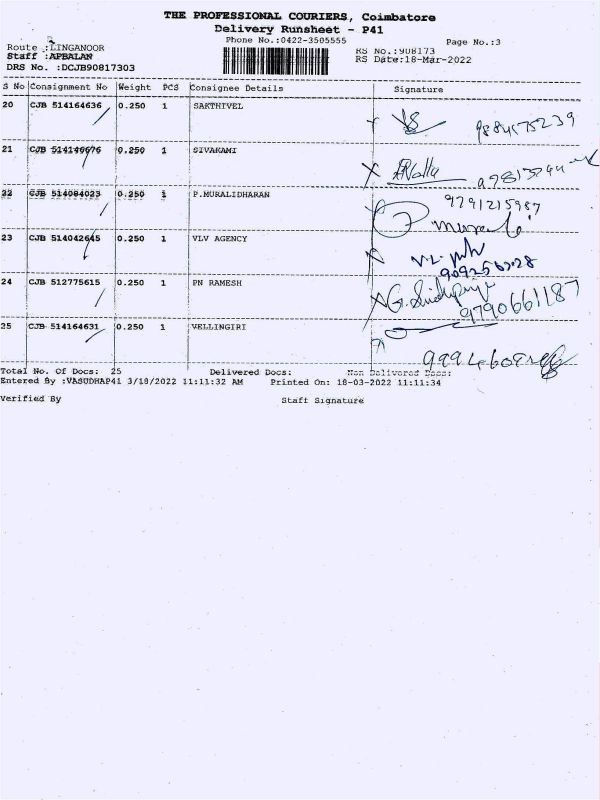 THE PROFESSIONAL COURIERS, Coimbatore
Delivery Runsheet - P41
Phone No.:0422-3505555
Page No.:3
Route :LINGANOOR
RS No.:908173
Staff :APBALAN
RS Date:18-Mar-2022
DRS No. :DCJB90817303
S No Consignment No Weight PCS Consignee Details Signature
20 CJB 514164636 0.250 1 SAKTHIVEL
21 CJB 514146676 0.250 1 SIVAKAMI
22 CJB 514084023 0.250 1 P.MURALIDHARAN
9791215987
23 CJB 514042645 0.250 1 VLV AGENCY
24 CJB 512775615 0.250 1 PN RAMESH
9790661187
25 CJB 514164631 0.250 1 VELLINGIRI
Total No. Of Docs: 25 Delivered Docs: Non Delivered Docs:
Entered By :VASUDHAP41 3/18/2022 11:11:32 AM Printed On: 18-03-2022 11:11:34
Verified By Staff Signature